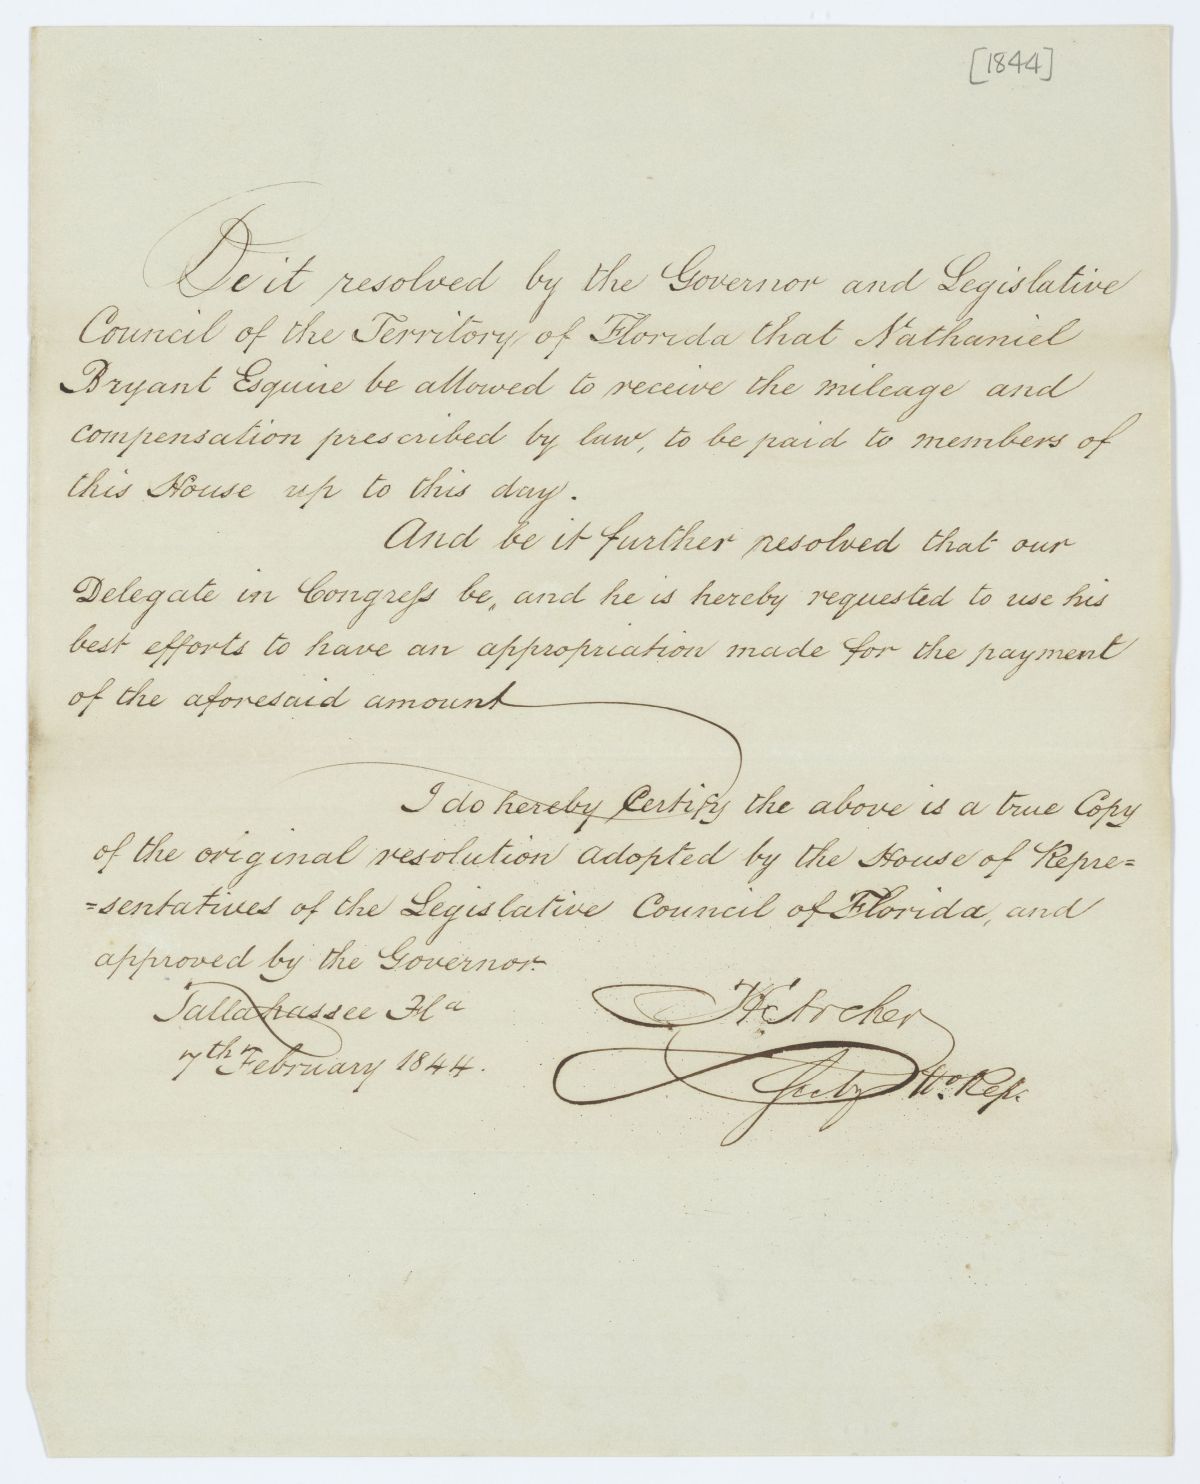 [1844]
Be it resolved by the Governor and Legislative
Council of the Territory of Florida that Nathaniel
Bryant Esquire be allowed to receive the mileage and
compensation prescribed by law, to be paid to members of
this House up to this day.
And be it further resolved that our
Delegate in Congress be, and he is hereby requested to use his
best efforts to have an appropriation made for the payment
of the aforesaid amount
I do hereby Certify the above is a true Copy
of the original resolution adopted by the House of Repre=
=sentatives of the Legislative Council of Florida, and
approved by the Governor.
Tallahassee Fla
7th February 1844.
Archer
Ho. Rep.